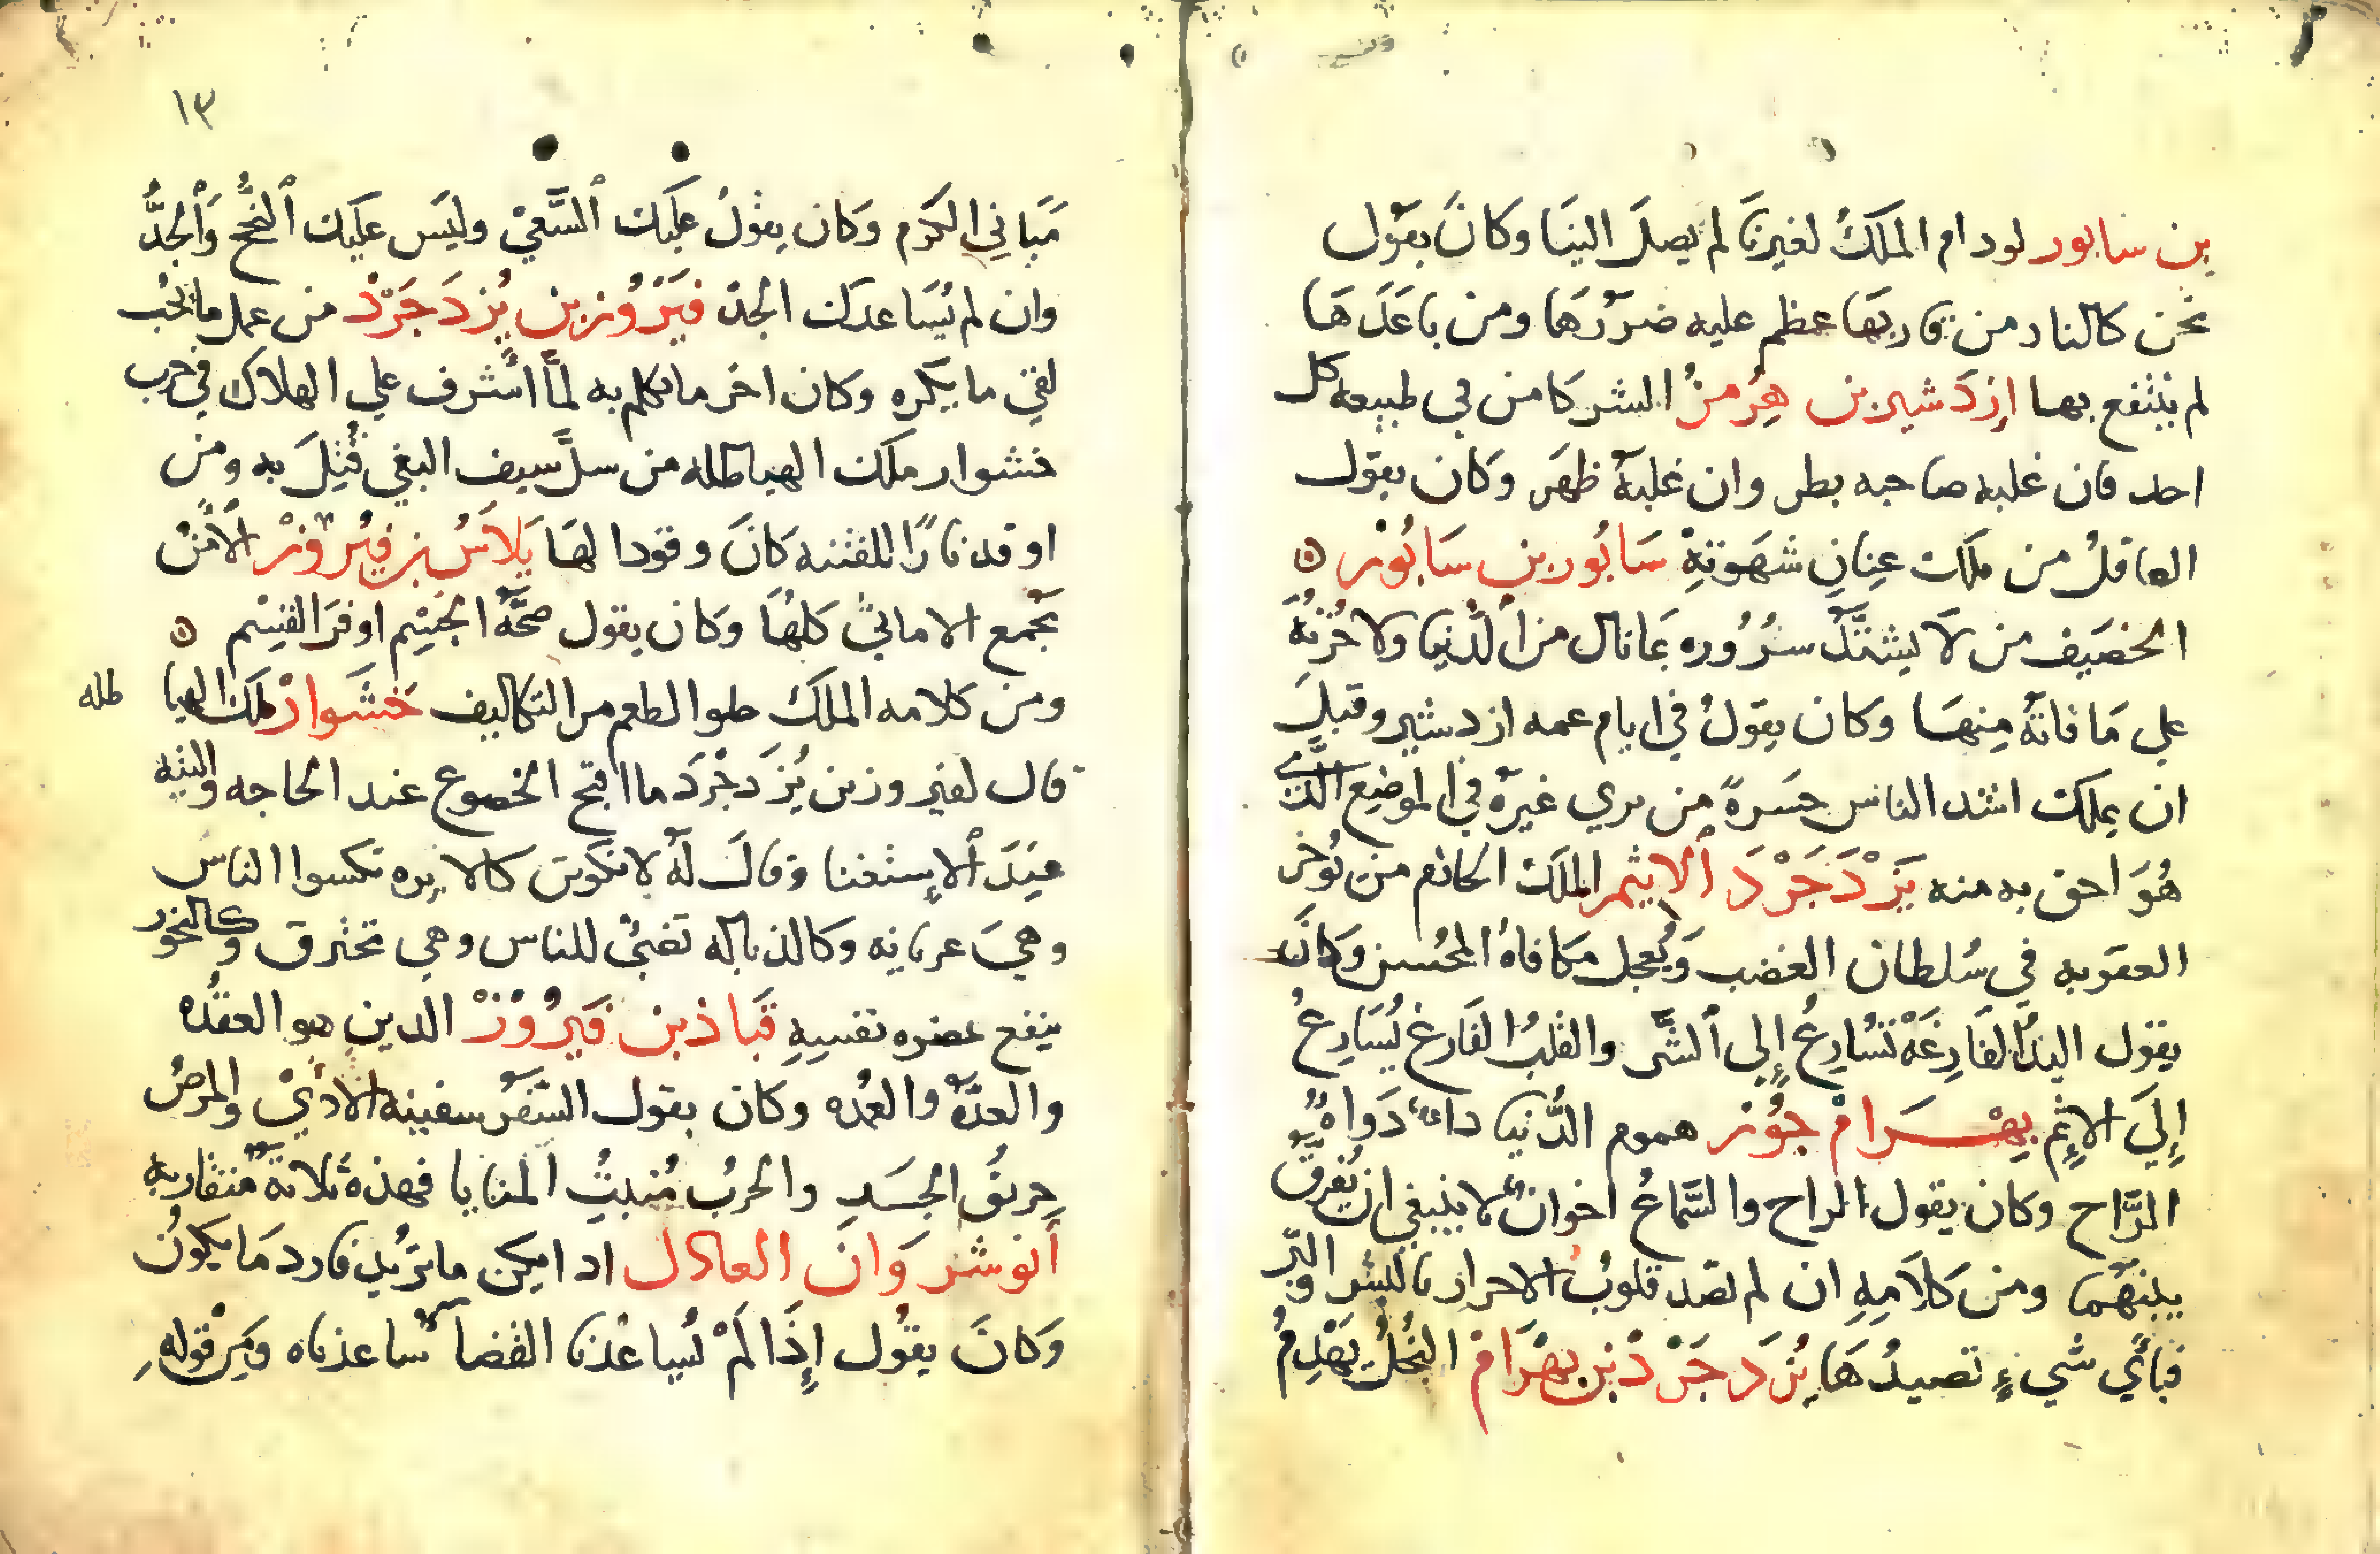 بن سابور لودام الملكُ لغيرنَا لم يصلَ الينَا وكانَ يقول
نحن كالنار من قاربهَا عظم عليه ضررُهَا ومن باعَدَهَا
لم ينتفع بها ازدَشير بن هِرمزُ الشر كامن في طبيعه كل
احد فان غلبه صاحبه بطن وان غلبهُ ظهَر وكان يقول
العاقلُ من ملك عِنانِ شهوَتهِ سَابُور بن سَابُور
الخصَيف من لاَ يشتَدّ سرُوُره بمَا نال من الدُنيا ولا حُزنهُ
علي مَا فاتهُ مِنهَا وكان يقولُ في ايام عمه ازدشير وقبلَ
ان يملك اشد الناس حسَرةً من يري غيرهُ في الموضِع الذّي
هُوَ احق به منه يَزْدَجَرْدَ الاثيم الملك الحازم من يُوخر
العقوبه في سُلطان الغضب وَيُعجل مكافاهُ المحُسن وكَانَ
يقول اليدُ الفَارِغَهْ تسَارِعُ إلي الشّر والقلبُ الفَارغ يُسَارِعُ
إِليَ الاثِمِ بهْرَامْ جُوُر هموم الدُّنيا داءُ دَواهُ
الرَّاح وكان يقول الراح والسَّماعُ اخوانُ لا ينبغي ان يُفرقَ
بينهَما ومن كلاَمِهِ ان لم تصد قلوبُ الاحرار بالبشر والبّر
فبأي شيءٍ تصيدُهَا يُزدَجَرْدْ بن بهْرَامْ البُخلُ يَهْدِمُ
١٣
مَبَانيِ الكرَم وكان يقولُ عليك السَّعيْ وليَس عليَك النُّجحْ وَالْجدُّ
وان لم يُسَاعدك الجدّ فيَرْوُز بن يُزدَجَرْدْ من عمل ما يُحب
لقيَ ما يكره وكان اخر ما تكلم به لماَّ اشرف علي الهلاك في حرب
خشنوار ملك الهياطله من سلَّ سيف البغي قُتِلَ به ومن
اوقد نارًا للفتنه كانَ وقودا لهَا بَلاَسُ بن فيُرْوزْ الأمْنُ
يَجْمع الامانيّ كلهُاَ وكان يقول صحَّهُ الجَسِم اوفرَ القسِْم
ومن كلامه الملكَ حلو الطعم مر التكاليف خشَوارْ ملك الهيا طله
قال لفيروز بن يُزدجرْدَ ما اقبح الخضوع عند الحاجه والتيه
عِندَ الاِستغنا وقالَ لهُ لا تكونَن كالابره تكسوا الناسَ
وهيَ عريانه وكالذباله تضيُ للناس وهي تحترق وكالبخور
ينفع غيره نفسِهِ قبَاذ بن فيَرُوُزْ الدين هو العقدُه
والعدَّهُ والعُمده وكان يقول السّفَر سفينه الاذيْ والمرضُ
حريقُ الجَسَدِ والحربُ مُنبتُ المنايا فهذهُ ثلاثهَ متقاربه
أنوشرَوانَ العادل اذا لم يكن ما تريُد فارد مَا يكونُ
وَكانَ يقوُل إِذَا لَمْ يُسَاعدْنا القضاءُ ساعدناه وَمِنْ قولهِ